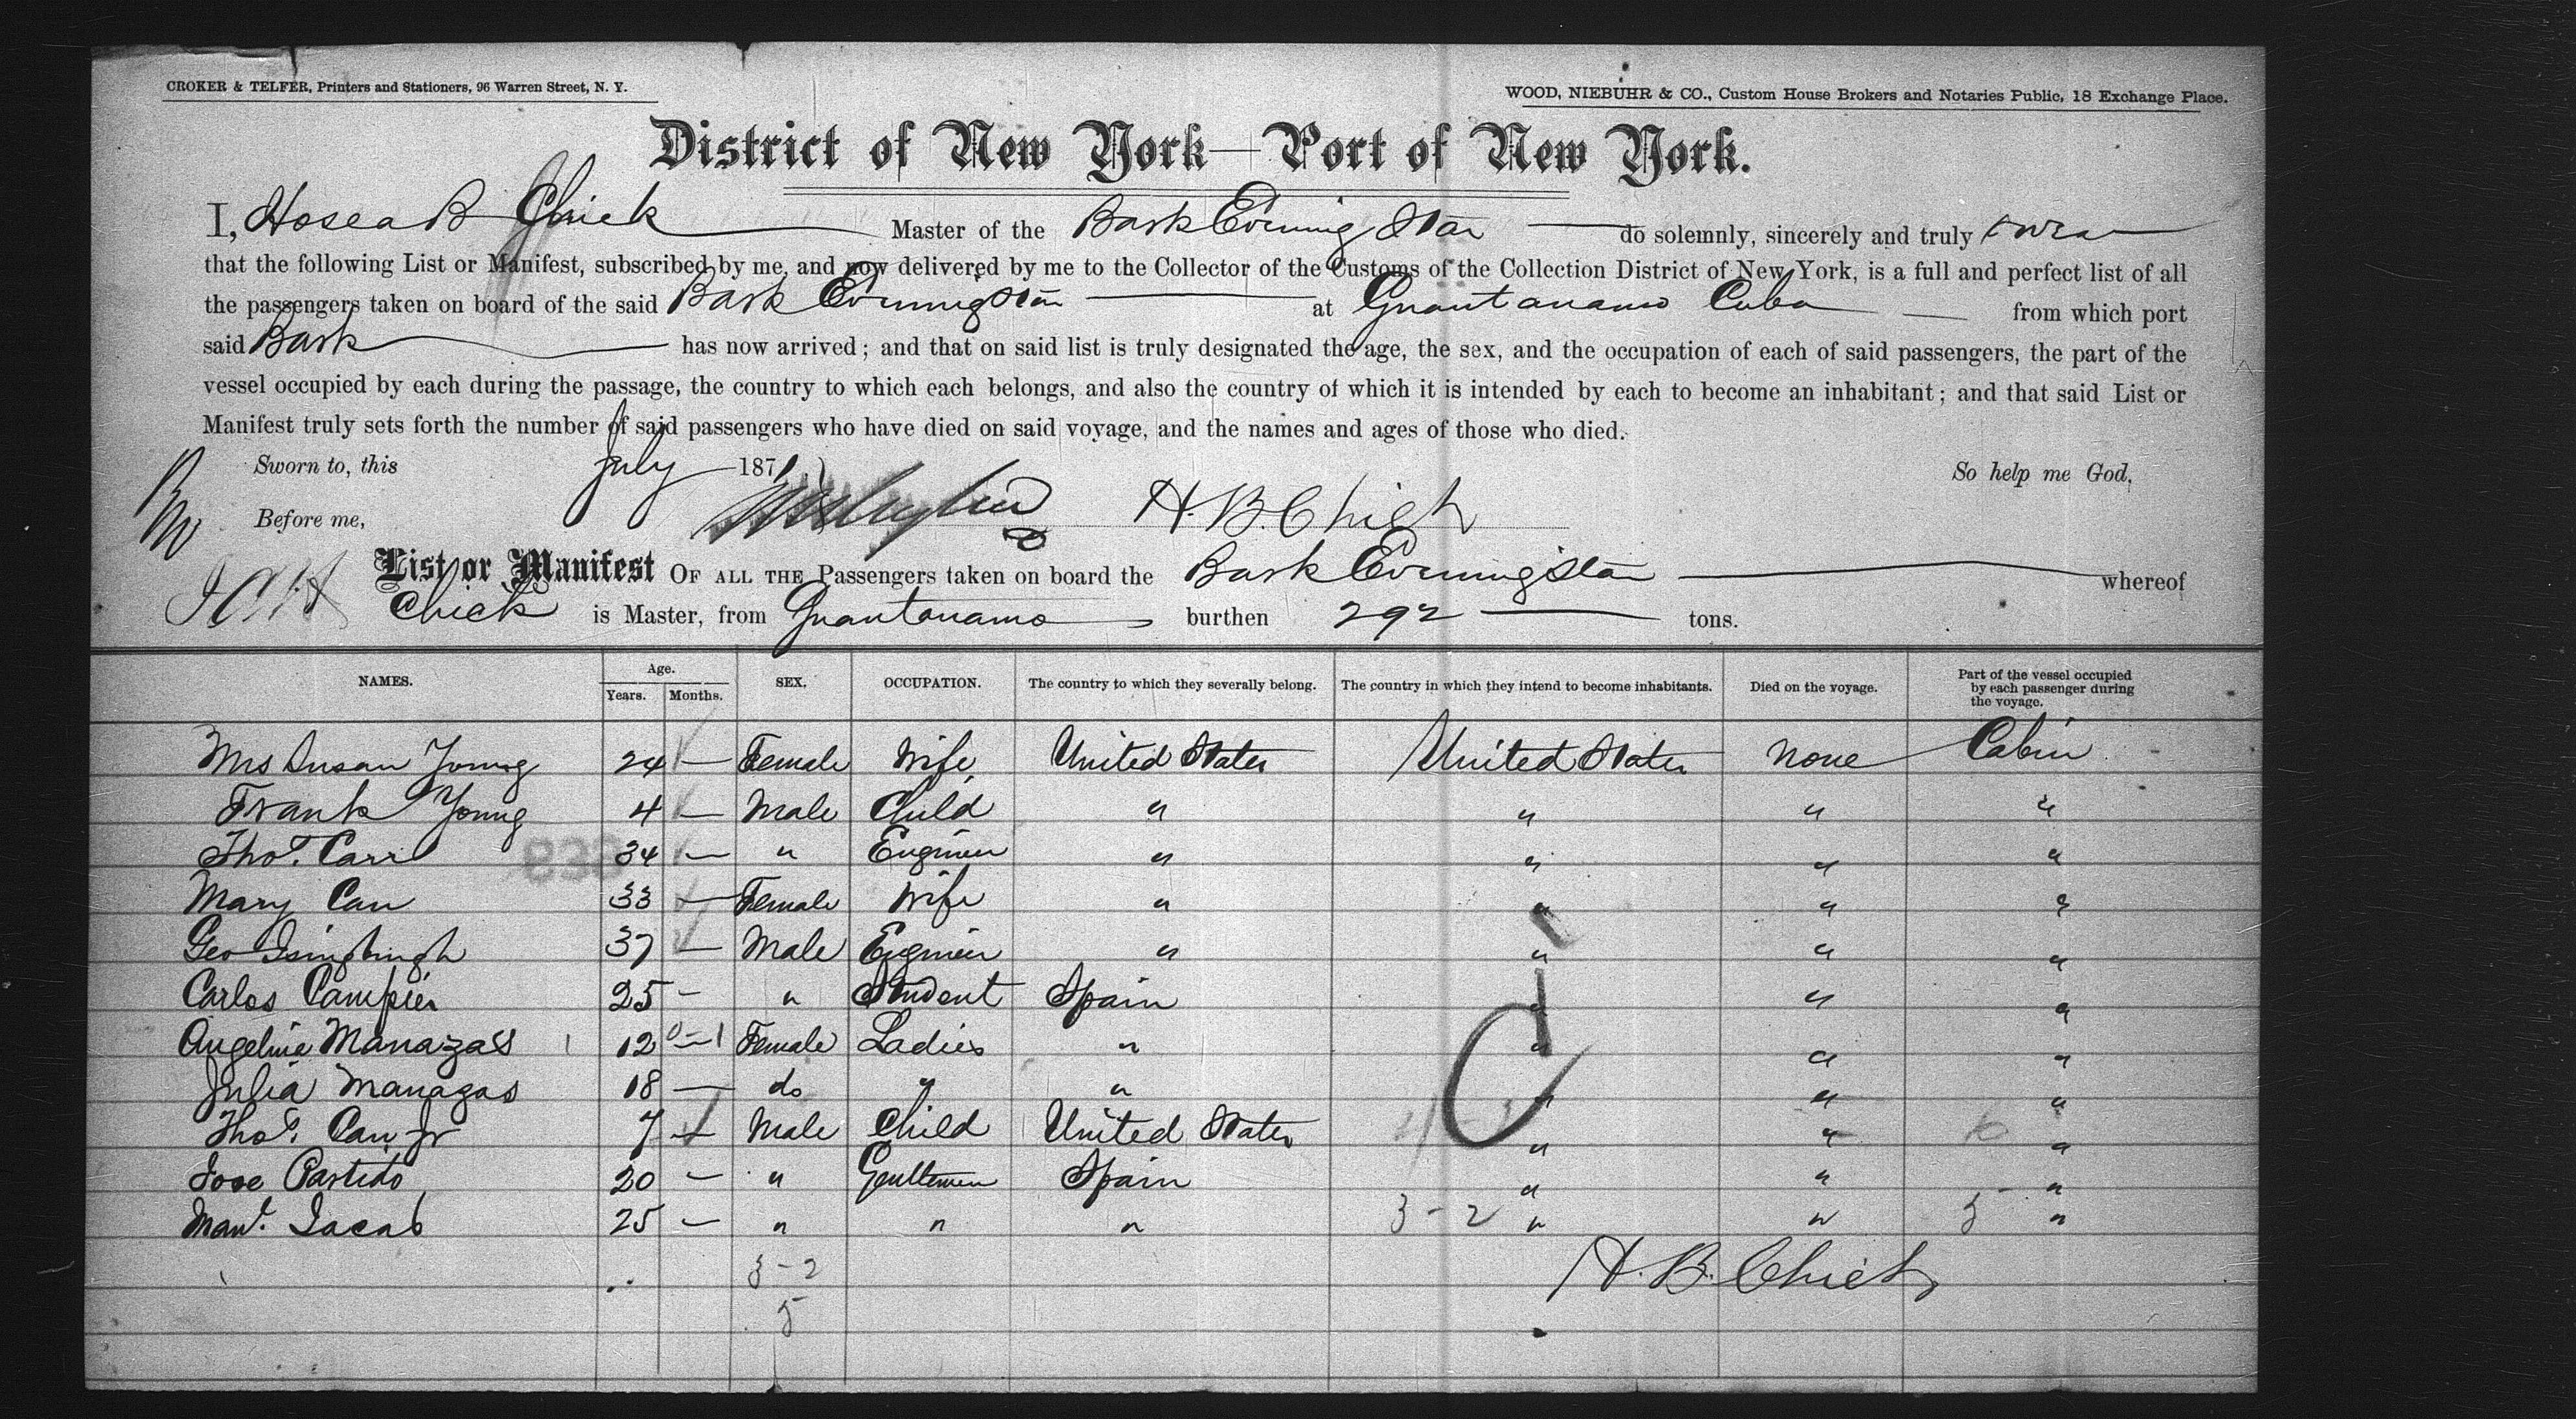 CROKER & TELFER, Printers and Stationers, 96 Warren Street, N. Y.
WOOD, NIEBUHR & CO., Custom House Brokers and Notaries Public, 18 Exchange Place.
District of New York—Port of New York.
I, Hosea B Chick Master of the Bark Evening Star do solemnly, sincerely and truly swear
that the following List or Manifest, subscribed by me, and now delivered by me to the Collector of the Customs of the Collection District of New York, is a full and perfect list of all
the passengers taken on board of the said Bark Evening Star at Guantanamo Cuba from which port
said Bark has now arrived; and that on said list is truly designated the age, the sex, and the occupation of each of said passengers, the part of the
vessel occupied by each during the passage, the country to which each belongs, and also the country of which it is intended by each to become an inhabitant; and that said List or
Manifest truly sets forth the number of said passengers who have died on said voyage, and the names and ages of those who died.
Sworn to, this July 1871 So help me God,
Before me, H. B. Chick
List or Manifest OF ALL THE Passengers taken on board the Bark Evening Star whereof
Chick is Master, from Guantanamo burthen 292 tons.
NAMES. Age. Years. Months. SEX. OCCUPATION. The country to which they severally belong. The country in which they intend to become inhabitants. Died on the voyage. Part of the vessel occupied by each passenger during the voyage.
Mrs Susan Young 24 — Female Wife United States United States None Cabin
Frank Young 4 — Male Child " " " "
Thos. Carr 34 — " Engineer " " " "
Mary Carr 33 — Female Wife " " " "
Geo 37 — Male Engineer " " " "
Carlos 25 - " Student Spain " " "
Angeline Manazas 12 0-1 Female Ladies " " " "
Julia Managas 18 — do " " " " "
Thos. Carr Jr 7 — Male Child United States " " "
Jose Partido 20 - " Gentlemen Spain " " "
Manl. Jacab 25 - " " " 3-2 " " 5 "
3-2 H. B. Chick
5